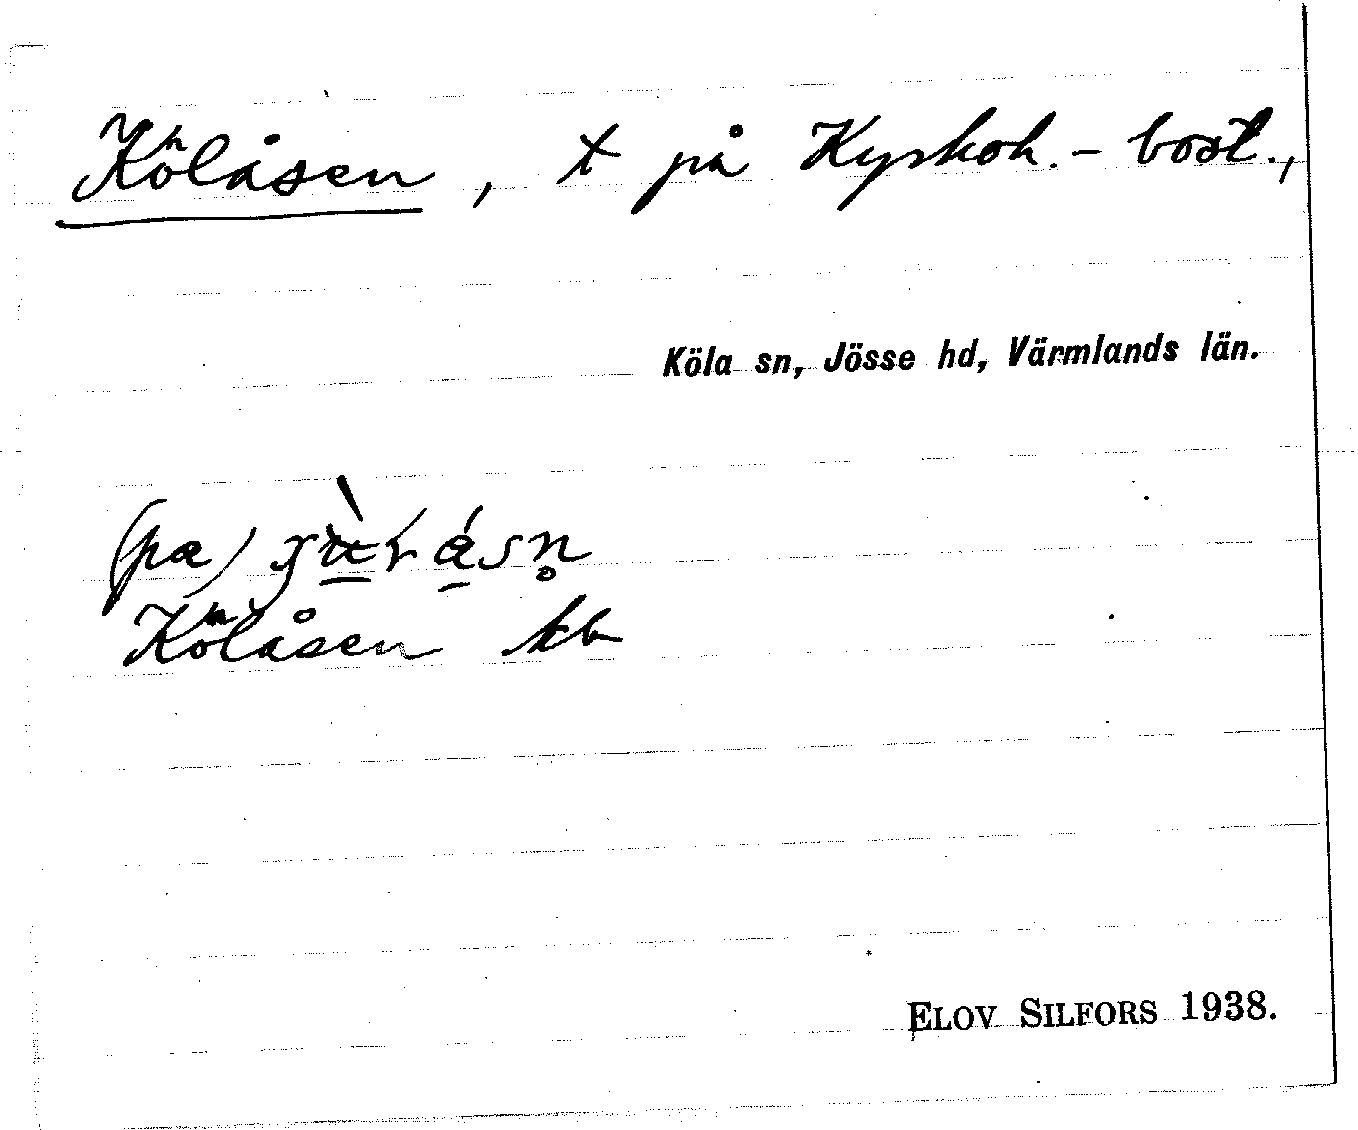 Kölåsen, t på Kyrkoh.-bost.,
Köla sn, Jösse hd, Värmlands län.
(pα)
Kölåsen kb
ELOV SILFORS 1938.